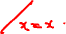 x = x.